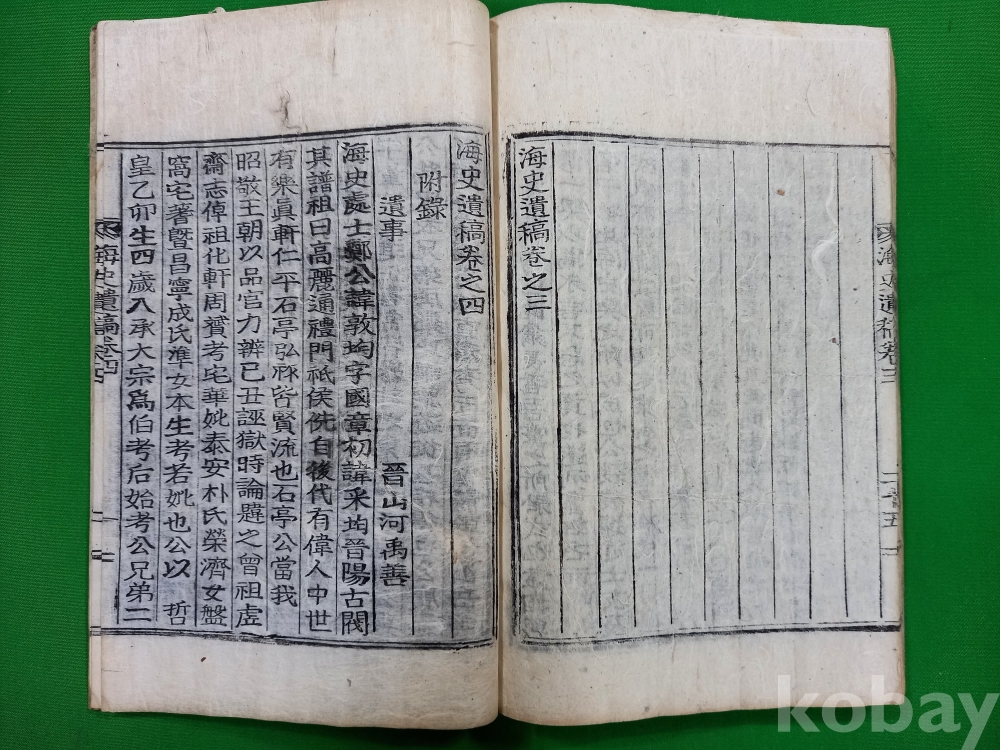 海史遺稿卷之三
海史遺稿卷之四
附錄
遺事
晉山河禹善
海史處士鄭公諱敦均字國章初諱采均晉陽古閥
其譜祖曰高麗通禮門祇侯侁自後代有偉人中世
有樂眞軒仁平石亭弘祚皆賢流也石亭公當我
昭敬王朝以品官力辨己丑誣獄時論韙之曾祖虛
齋志倬祖化軒周贇考宅華妣泰安朴氏榮濟女盤
窩宅著曁昌寧成氏準女本生考若妣也公以 哲
皇乙卯生四歲入承大宗爲伯考后始考公兄弟二
海史遺稿卷三
二十五
海史遺稿卷四
一
kobay